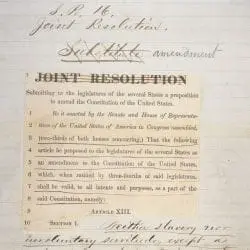 S. R. 16.
Joint Resolution.
Substitute amendment
JOINT RESOLUTION
Submitting to the legislatures of the several States a proposition
to amend the Constitution of the United States.
1 Be it enacted by the Senate and House of Representa-
2 tives of the United States of America in Congress assembled,
3 (two-thirds of both houses concurring,) That the following
4 article be proposed to the legislatures of the several States as
5 an amendment to the Constitution of the United States,
6 which, when ratified by three-fourths of said legislatures,
7 shall be valid, to all intents and purposes, as a part of the
8 said Constitution, namely:
9 ARTICLE XIII.
10 SECTION 1. Neither slavery nor
involuntary servitude, except as